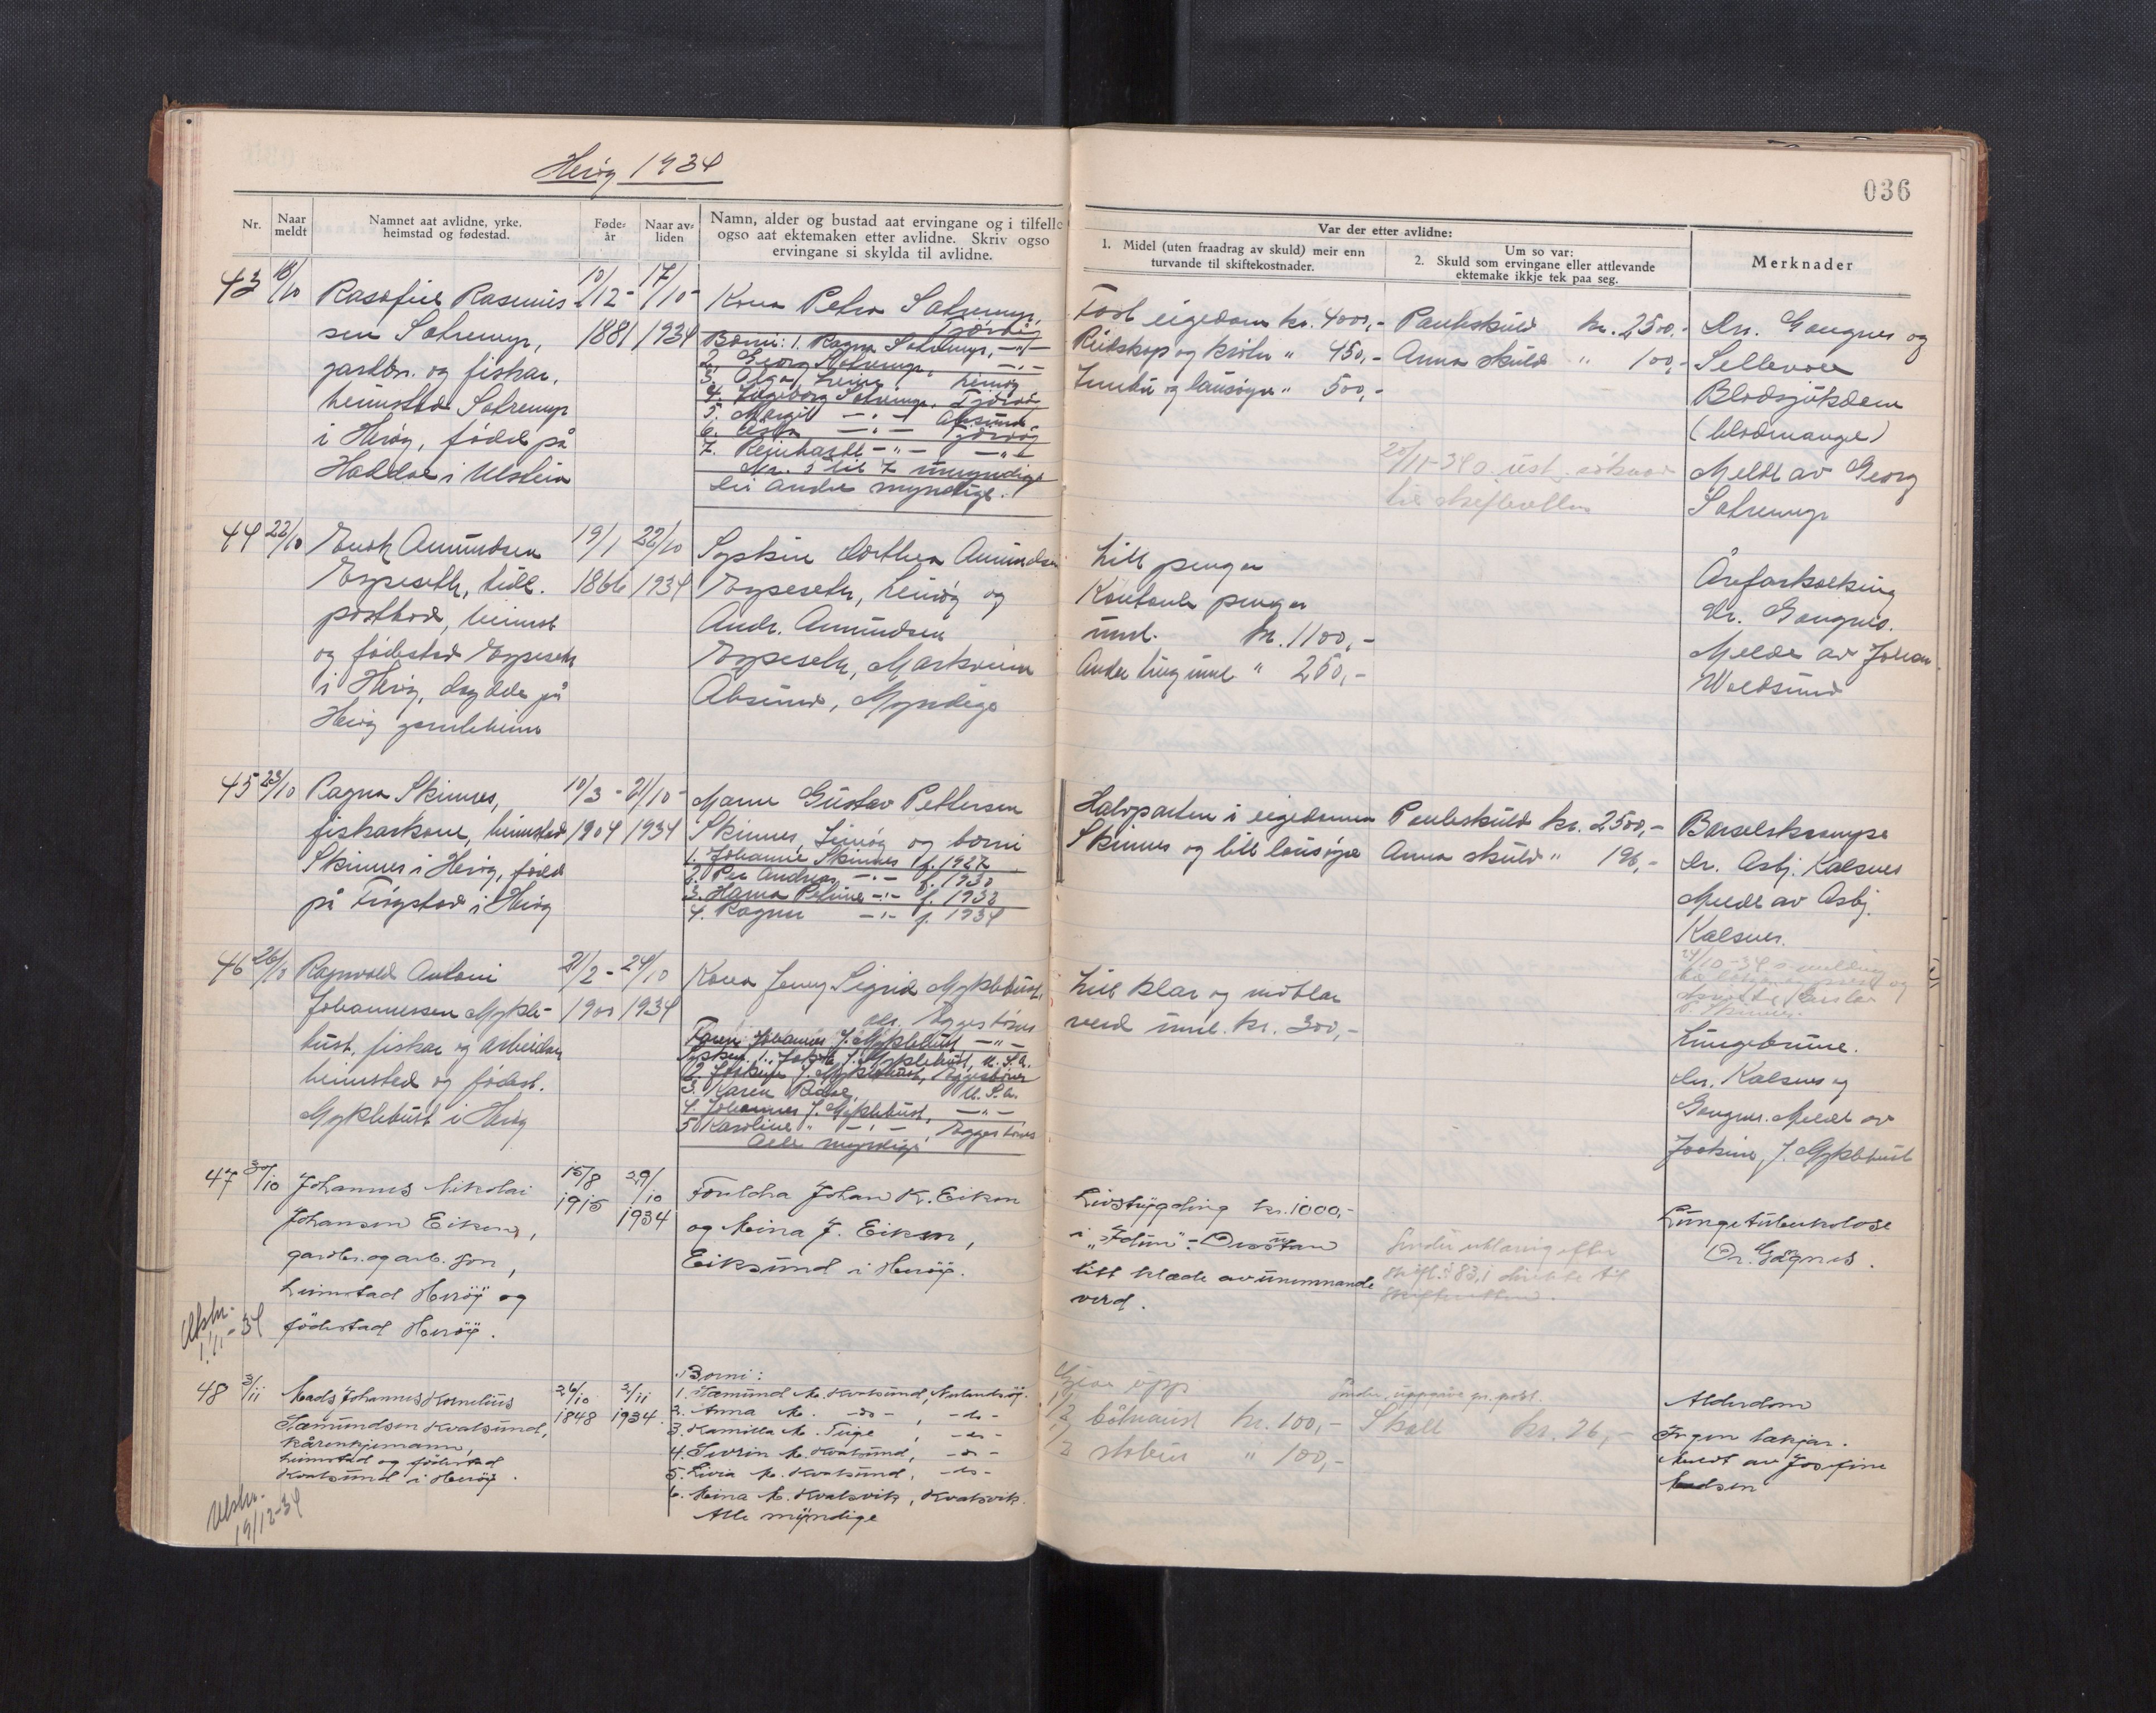 Herøy 1934
036
Nr.
Naar meldt
Namnet aat avlidne, yrke.
heimstad og fødestad.
Føde-
år
Naar av-
liden
Namn, alder og bustad aat ervingane og i tilfelle
ogso aat ektemaken etter avlidne. Skriv ogso
ervingane si skylda til avlidne.
Var der etter avlidne:
1. Midel (uten fraadrag av skuld) meir enn
turvande til skiftekostnader.
Um so var:
2. Skuld som ervingane eller attlevande
ektemake ikkje tek paa seg.
Merknader
43 18/10 Rasmus-
sen Sætremyr,
gardbr. og fiskar,
heimstad Sætremyr
i Herøy, fødd på
i Ulstein
10/12-
1881
17/10-
1934
Kona Petra Sætremyr,
Borni: 1. Ragna Sætremyr, -"-
2. Georg Sætremyr, -"-
3. Olga Leinøy
4. Ingeborg Sætremyr,
5. Margit -"-
6. Asta -"-
7. Reinhardt -"- -"-
Nr. 5 til 7 umyndige
dei andre myndige.
Fast eigedom kr. 4000,-
Reidskap og krøtr " 450,-
Innbu og lausøyre " 500,-
Panteskuld kr. 2500,-
Anna skuld " 100,-
20/11-34 s. ust.
til skifteretten
Dr. Gangnes og
Sellevold
Blodsjukdom
(blodmangel)
Meldt av Georg
Sætremyr
44 22/10 Amundsen
Espeseth, tidl.
postbod, heimst
og fødestad Espeseth
i Herøy, døydde på
Herøy gamleheim
19/1
1866
22/10
1934
Syskin Dorthea Amundsen
Espeseth, Leinøy og
Andr. Amundsen
Espeseth,
Ålesund, Myndige
Litt pengar
Kontante pengar
uml. kr. 1100,-
Andre ting uml " 250,-
Åreforkalking
Dr. Gangnes.
Meldt av Johan
Voldsund
45 23/10 Ragna Skinnes,
fiskarkone, heimstad
Skinnes i Herøy, fødd
på Frøystad i Herøy
10/3-
1904
21/10-
1934
Mann Gustav Pettersen
Skinnes, Leinøy og borni
1. Johannie Skinnes f. 1927
2. Per Andreas -"- f. 1930
3. Hanna Petrine -"- f. 1933
4. Ragna -"- f. 1934
Halvparten i eigedomen
Skinnes og litt lausøyre
Panteskuld kr. 2500,-
Anna skuld " 196,-
Barselskrampe
Dr. Asbj. Kalsnes
Meldt av Asbj.
Kalsnes.
46 26/10 Ragnvald Antoni
Johannessen Mykle-
bust, fiskar og arbeidar
heimstad og fødest.
Myklebust i Herøy
21/2-
1900
24/10
1934
Kona Jenny Sigrid Myklebust,
Eggesbønes
Faren Johannes J. Myklebust -"-
Syskin 1. J. Myklebust, U.S.A.
2. J. Myklebust, Eggesbønes
3. Karen U.S.A.
4. Johannes J. Myklebust, -"-
5. Karoline " -"-, Eggesbønes
Alle myndige
Litt klær og møblar
verd uml. kr. 300,-
Lungebrune.
Dr. Kalsnes og
Gangnes. Meldt av
J. Myklebust
47 30/10 Johannes Nikolai
Johansen Eikrem,
gardbr. og arb. son,
heimstad Herøy og
fødestad Herøy.
15/8
1915
29/10
1934
Foreldra Johan K. Eikrem
og Meina J. Eikrem,
Eiksund i Herøy.
Livstrygding kr. 1000,-
i "Idun".
litt klæde av unemnande
verd.
Lungetuberkolose
Dr. Gagnes.
Ulstn.
1/11-34
48 3/11 Mads Johannes Kornelius
Sæmundsen Kvalsund,
kårenkjemann,
heimstad og fødestad
Kvalsund i Herøy.
26/10
1848
2/11
1934.
Borni:
1. Sæmund M. Kvalsund, Nerlandsøy.
2. Anna M. -do-, -do-
3. Kamilla M. Teige, -do-
4. Severin M. Kvalsund, -do-
5. Livia M. Kvalsund, -do-
6. Meina M. Kvalsvik, Kvalsvik.
Alle myndige
Gjev upp
1/2 båtnaust kr. 100,-
1/2 stabur " 100,-
Skatt kr. 26,-
Alderdom
Ingen lækjar.
Meldt av Josefine
Madsen
Ulstn.
19/12-34